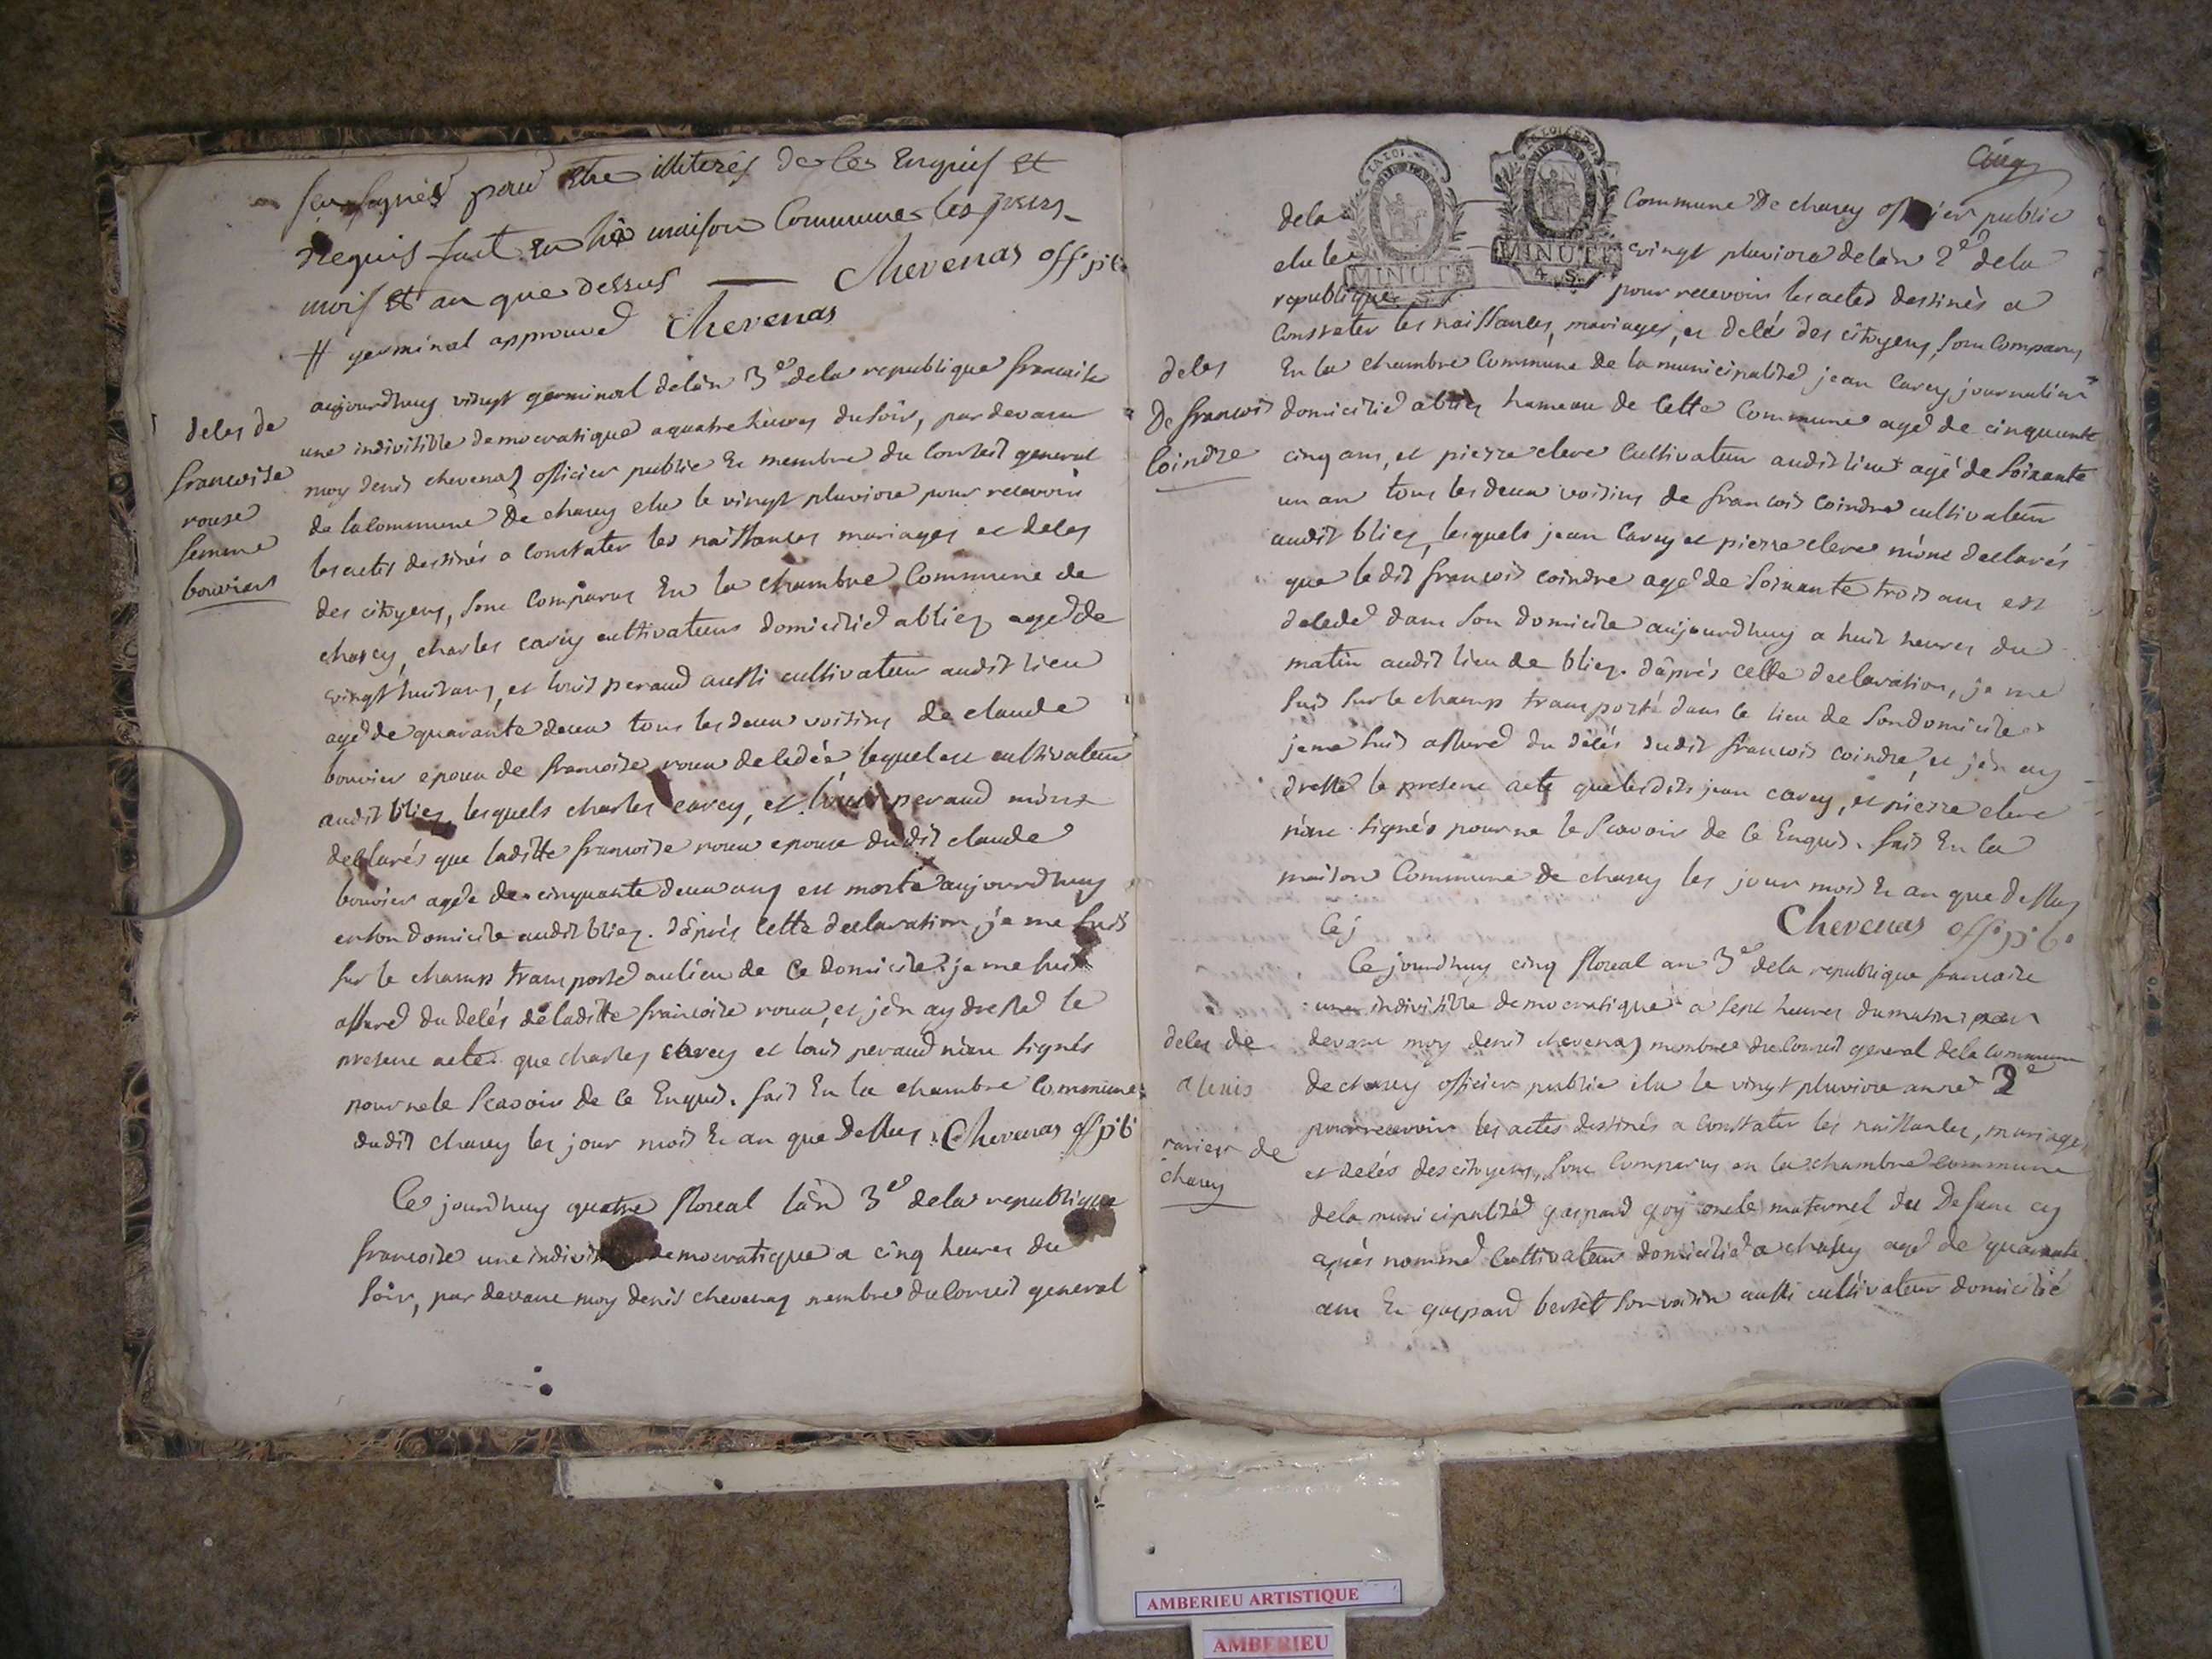 pour être illiterés de ce Enquis et
Requis fait en la maison Commune les jours
mois et an que dessus — Chevenas off. p. b.
# germinal approuvé Chevenas
deces de
francoise
roux
femme
bouvier
aujourdhuy vingt germinal de lan 3e dela republique francaise
une indivisible democratique a quatre heures du soir, par devant
moy denis chevenas officier public Et membre du Conseil general
de la Commune De charey elu le vingt pluviose pour recevoir
les actes destinés a Constater les naissances mariages et deces
des citoyens, sont Comparus En la chambre Commune de
charey, charles carey cultivateur domicilié a bliez agé de
vingt huit ans, et louis peraud aussi cultivateur audit lieu
agé de quarante deux tous les deux voisins de claude
bouvier epoux de francoise roux decedée lequel est cultivateur
audit bliez, lesquels charles carey, et louis peraud m'ont
declarés que laditte francoise roux epouse dudit claude
bouvier agée de cinquante deux ans est morte aujourdhuy
en son domicile audit bliez. d'après cette declaration, je me suis
sur le champ transporté au lieu de ce domicile. je me suis
assuré du decés de laditte francoise roux, et j'en ay dressé le
present acte que charles carey et louis peraud n'ont signés
pour ne le scavoir de ce Enquis. fait En la chambre Commune
dudit charey les jour mois Et an que dessus. Chevenas off p b
Ce jourdhuy quatre floreal lan 3e dela republique
francoise une democratique a cinq heures du
soir, par devant moy denis chevenas membre du Conseil general
Cinq
LA LOI
MINUTE
MINUTE
4. S.
dela Commune De charey officier public
elu le vingt pluviose de lan 2e dela
republique pour recevoir les actes destinés a
Constater les naissances, mariages, et decés des citoyens, sont Comparus
En la chambre Commune de la municipalité jean Carey journalier
deces
De francois
Coindre
domicilié a bliez hameau de cette Commune agé de cinquante
cinq ans, et pierre cleve Cultivateur audit lieu agé de soixante
un an tous les deux voisins de francois Coindre cultivateur
audit bliez, lesquels jean Carey et pierre cleve m'ont declarés
que le dit francois coindre agé de soixante trois ans est
decedé dans son domicile aujourdhuy a huit heures du
matin audit lieu de bliez. d'après cette declaration, je me
suis sur le champ transporté dans le lieu de son domicile
je me suis assuré du décés dudit francois coindre, et j'en ay
dressé le present acte que lesdits jean carey, et pierre cleve
n'ont signés pour ne le scavoir de ce Enquis. fait En la
maison Commune de charey les jour mois Et an que dessus
Cej
Chevenas off. p. b.
Ce jourdhuy cinq floreal an 3e dela republique francaise
une indivisible democratique a sept heures du matin par
deces de
alexis
ravier de
charey
devant moy denis chevenas membre du Conseil general dela Commune
de charey officier public elu le vingt pluviose année 2e
pour recevoir les actes destinés a Constater les naissances, mariages
et decés des citoyens, sont Comparus en la chambre commune
dela municipalité gaspard goy oncle maternel du Defunt cy
après nommé Cultivateur domicilié a charey agé de quarante
ans Et gaspard berset son voisin aussi cultivateur domicilié
AMBERIEU ARTISTIQUE
AMBERIEU